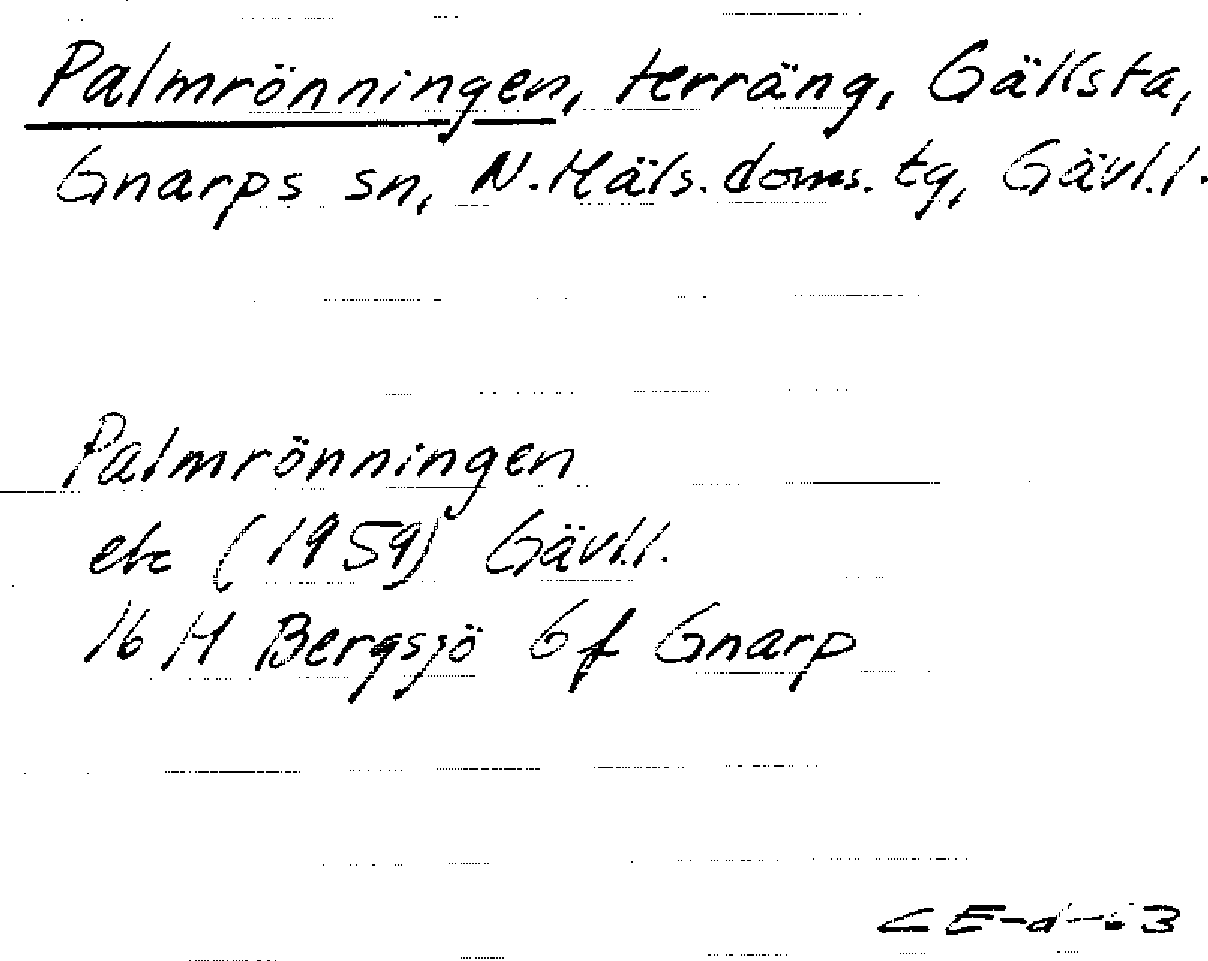 Palmrönningen, terräng, Gällsta,
Gnarps sn, N. Häls. doms. tg, Gävl.l.
Palmrönningen
ek (1959) Gävl.l.
16 H Bergsjö 6f Gnarp